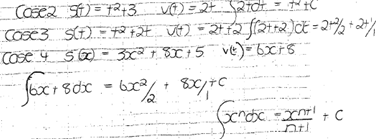 Case 2 S(t) = t²+3 V(t) = 2t ∫2tdt = t²+c
Case 3 S(t) = t²+2t V(t) = 2t+2 ∫(2t+2)dt = 2t²/2 + 2t/1
Case 4 S(x) = 3x² + 8x + 5 V(t) = 6x+8
∫6x+8dx = 6x²/2 + 8x/1 + C
∫xⁿdx = xⁿ⁺¹/n+1 + C